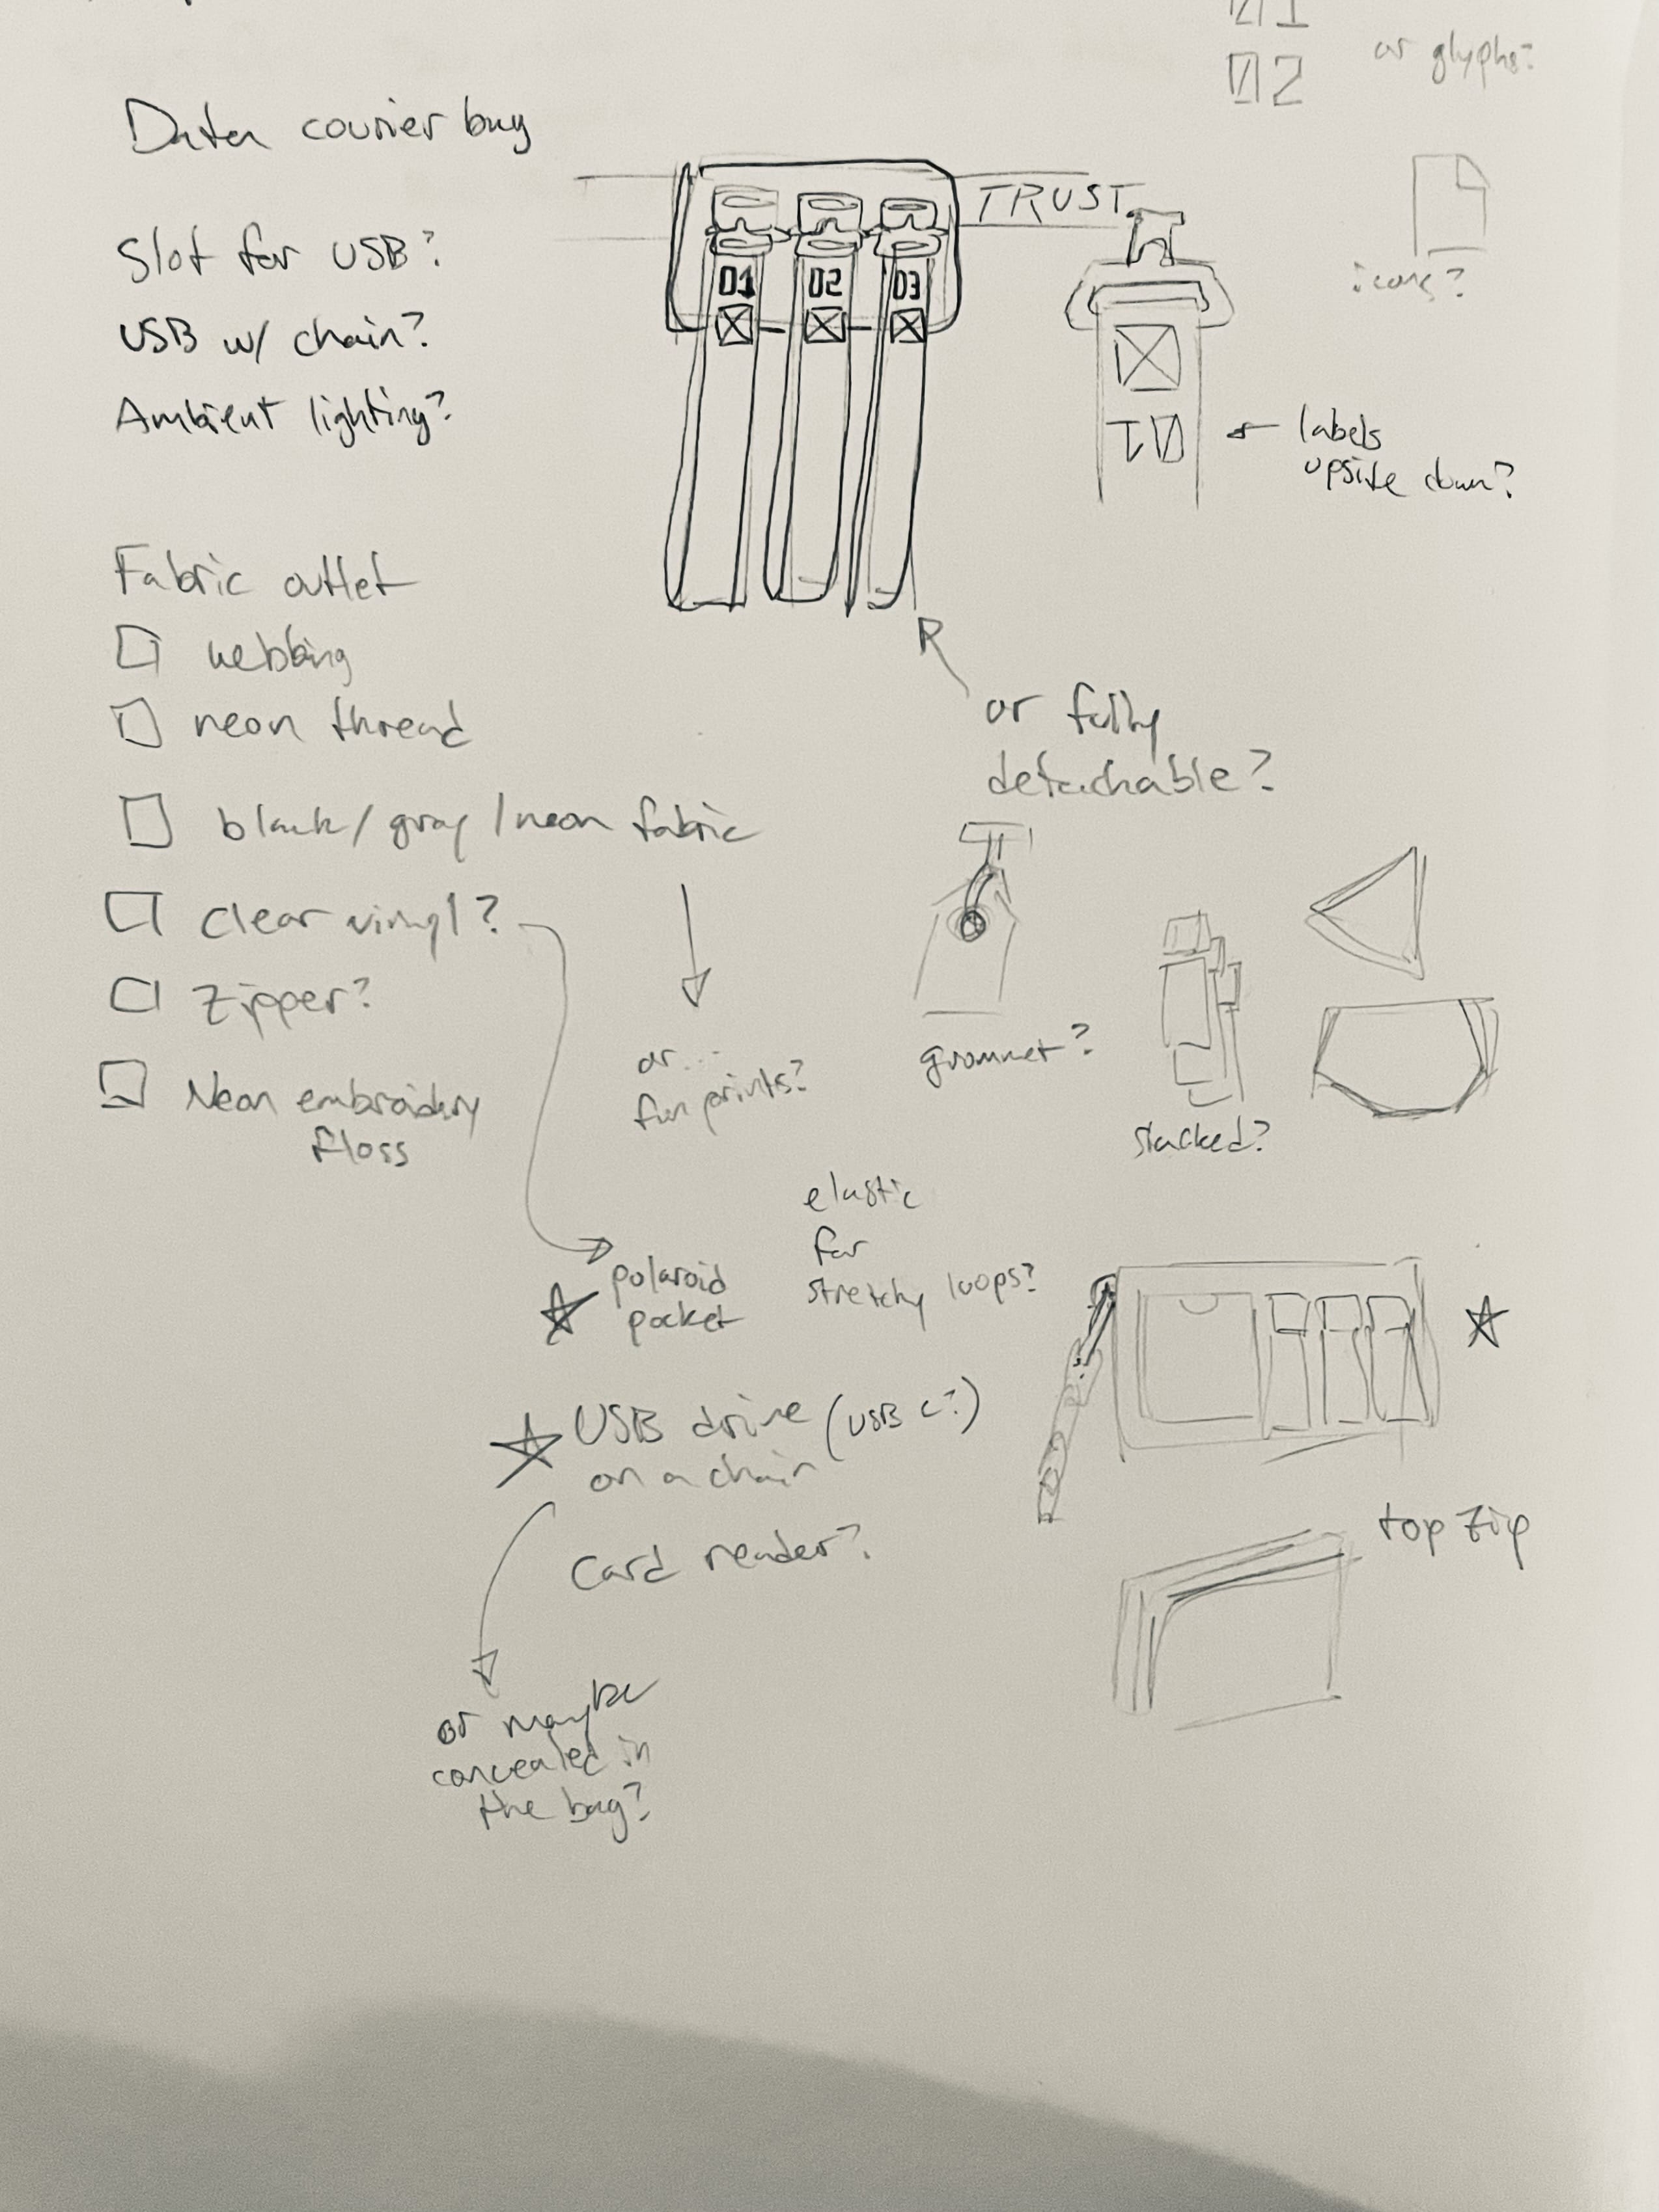 01
02
or glyphs?
Data courier bag
TRUST
Slot for USB?
USB w/ chain?
Ambient lighting?
01 02 03
icons?
10
labels
upside down?
Fabric outlet
webbing
neon thread
black/gray/neon fabric
clear vinyl?
Zipper?
Neon embroidery
floss
or fully
detachable?
or...
fun prints?
grommet?
stacked?
polaroid
pocket
elastic
for
stretchy loops?
USB drive (USB C?)
on a chain
Card reader?
top zip
or maybe
concealed in
the bag?